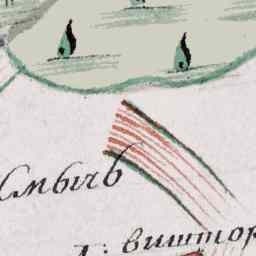 Смычь
А: виштор